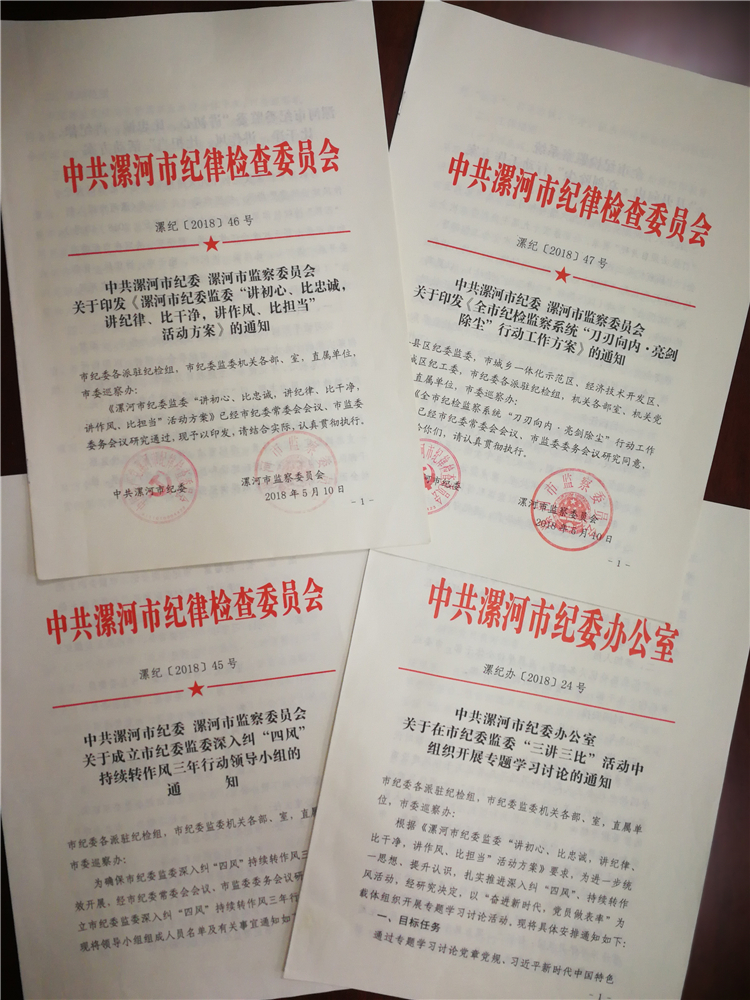 中共漯河市纪律检查委员会
漯纪〔2018〕46号
中共漯河市纪委 漯河市监察委员会
关于印发《漯河市纪委监委“讲初心、比忠诚，
讲纪律、比干净，讲作风、比担当”
活动方案》的通知
市纪委各派驻纪检组，市纪委监委机关各部、室，直属单位，
市委巡察办：
《漯河市纪委监委“讲初心、比忠诚，讲纪律、比干净，
讲作风、比担当”活动方案》已经市纪委常委会会议、市监委
委务会议研究通过，现予以印发，请结合实际，认真贯彻执行。
中共漯河市纪委 漯河市监察委员会
2018年5月10日
-1-
中共漯河市纪律检查委员会
漯纪〔2018〕47号
中共漯河市纪委 漯河市监察委员会
关于印发《全市纪检监察系统“刀刃向内·亮剑
除尘”行动工作方案》的通知
县区纪委监委，市城乡一体化示范区、经济技术开发区、
城区纪工委，市纪委各派驻纪检组，机关各部室、机关党
直属单位，市委巡察办：
《全市纪检监察系统“刀刃向内·亮剑除尘”行动工作
已经市纪委常委会会议、市监委委务会议研究同意，
给你们，请认真贯彻执行。
河市纪委 漯河市监察委员会
2018年5月10日
-1-
中共漯河市纪律检查委员会
漯纪〔2018〕45号
中共漯河市纪委 漯河市监察委员会
关于成立市纪委监委深入纠“四风”
持续转作风三年行动领导小组的
通 知
市纪委各派驻纪检组，市纪委监委机关各部、室，直属
市委巡察办：
为确保市纪委监委深入纠“四风”持续转作风三
效开展，经市纪委常委会会议、市监委委务会议研
立市纪委监委深入纠“四风”持续转作风三年行
现将领导小组组成人员名单及有关事宜通知如
中共漯河市纪委办公室
漯纪办〔2018〕24号
中共漯河市纪委办公室
关于在市纪委监委“三讲三比”活动中
组织开展专题学习讨论的通知
市纪委各派驻纪检组，市纪委监委机关各部、室，直属单
位，市委巡察办：
根据《漯河市纪委监委“讲初心、比忠诚，讲纪律、
比干净，讲作风、比担当”活动方案》要求，为进一步统
一思想、提升认识，扎实推进深入纠“四风”、持续转作
风活动，经研究决定，以“奋进新时代，党员做表率”为
载体组织开展专题学习讨论活动，现将具体安排通知如下：
一、目标任务
通过专题学习讨论党章党规、习近平新时代中国特色
-1-